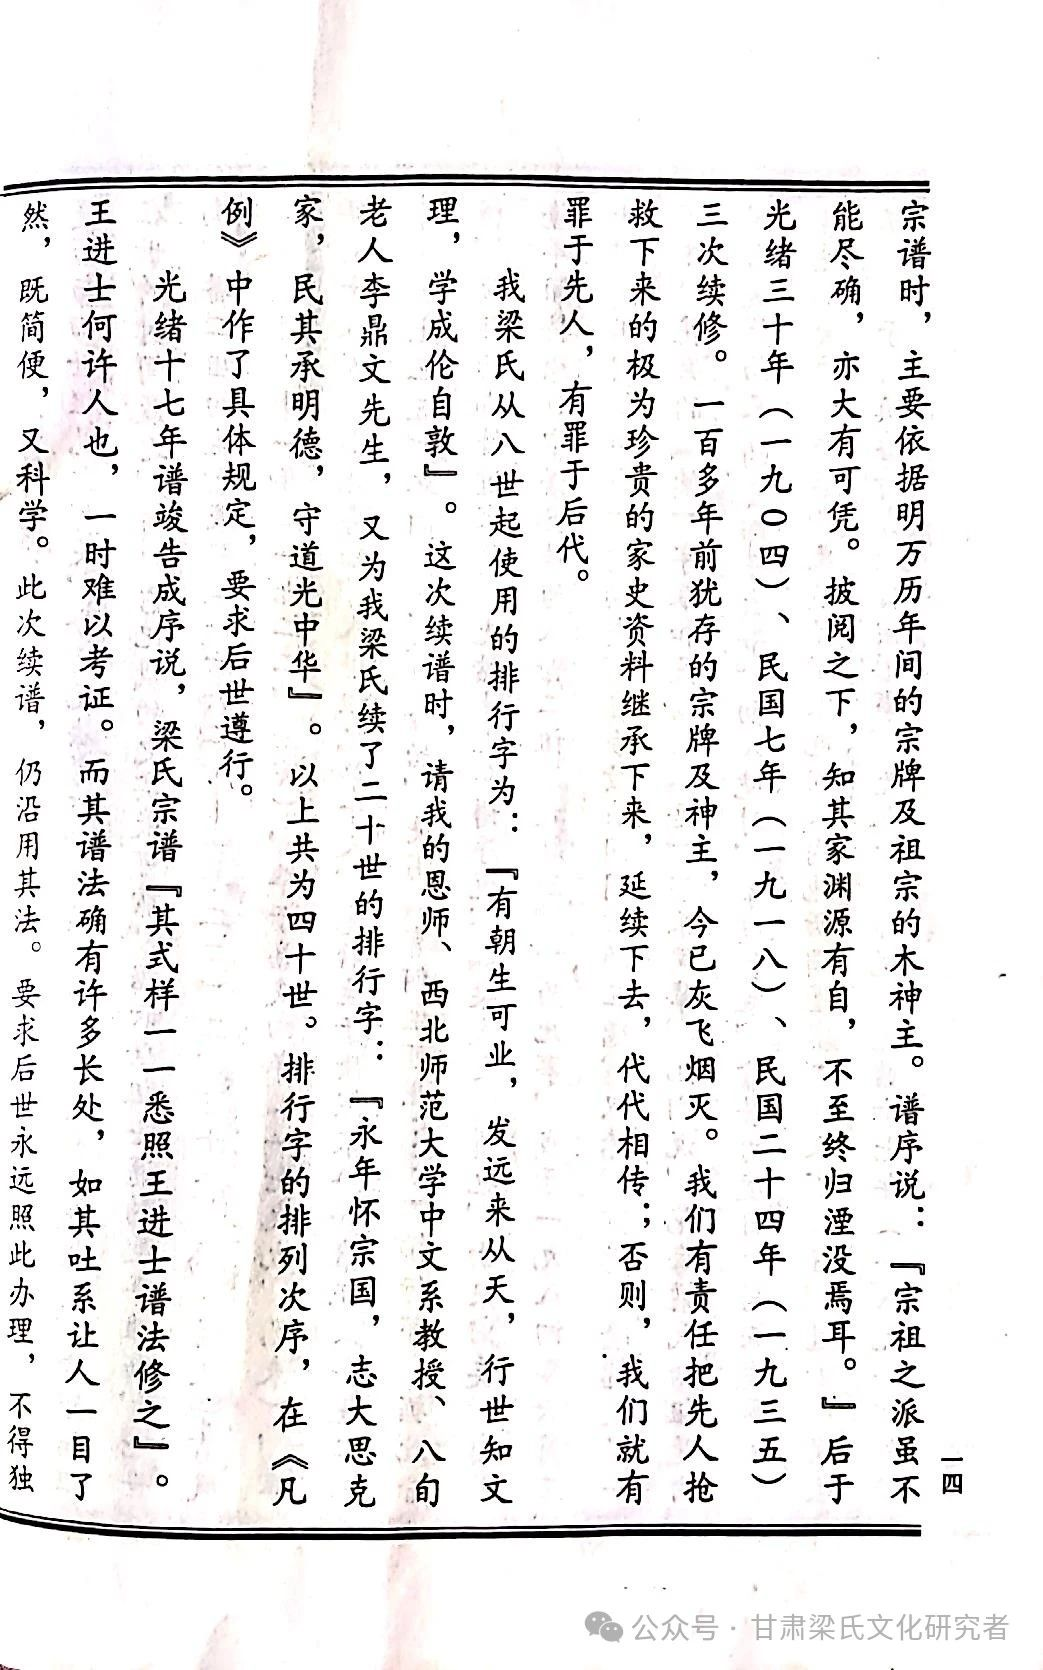 宗谱时，主要依据明万历年间的宗牌及祖宗的木神主。谱序说：『宗祖之派虽不
能尽确，亦大有可凭。披阅之下，知其家渊源有自，不至终归湮没焉耳。』后于
光绪三十年（一九〇四）、民国七年（一九一八）、民国二十四年（一九三五）
三次续修。一百多年前犹存的宗牌及神主，今已灰飞烟灭。我们有责任把先人抢
救下来的极为珍贵的家史资料继承下来，延续下去，代代相传；否则，我们就有
罪于先人，有罪于后代。
我梁氏从八世起使用的排行字为：『有朝生可业，发远来从天，行世知文
理，学成伦自敦』。这次续谱时，请我的恩师、西北师范大学中文系教授、八旬
老人李鼎文先生，又为我梁氏续了二十世的排行字：『永年怀宗国，志大思克
家，民其承明德，守道光中华』。以上共为四十世。排行字的排列次序，在《凡
例》中作了具体规定，要求后世遵行。
光绪十七年谱竣告成序说，梁氏宗谱『其式样一一悉照王进士谱法修之』。
王进士何许人也，一时难以考证。而其谱法确有许多长处，如其吐系让人一目了
然，既简便，又科学。此次续谱，仍沿用其法。要求后世永远照此办理，不得独
一四
公众号·甘肃梁氏文化研究者